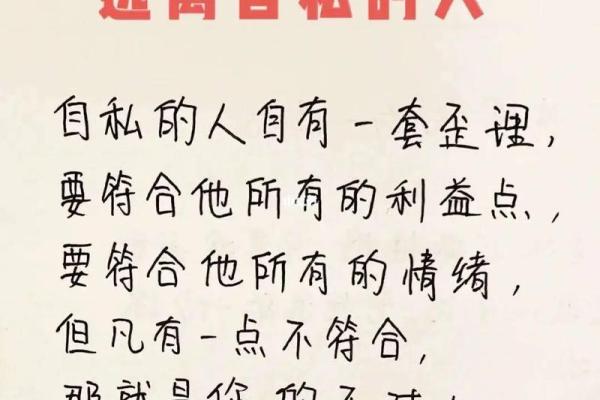 远离自私的人
自私的人自有一套歪理，
要符合他所有的利益点，
要符合他所有的情绪，
但凡有一点不符合，
那就是你的不对！